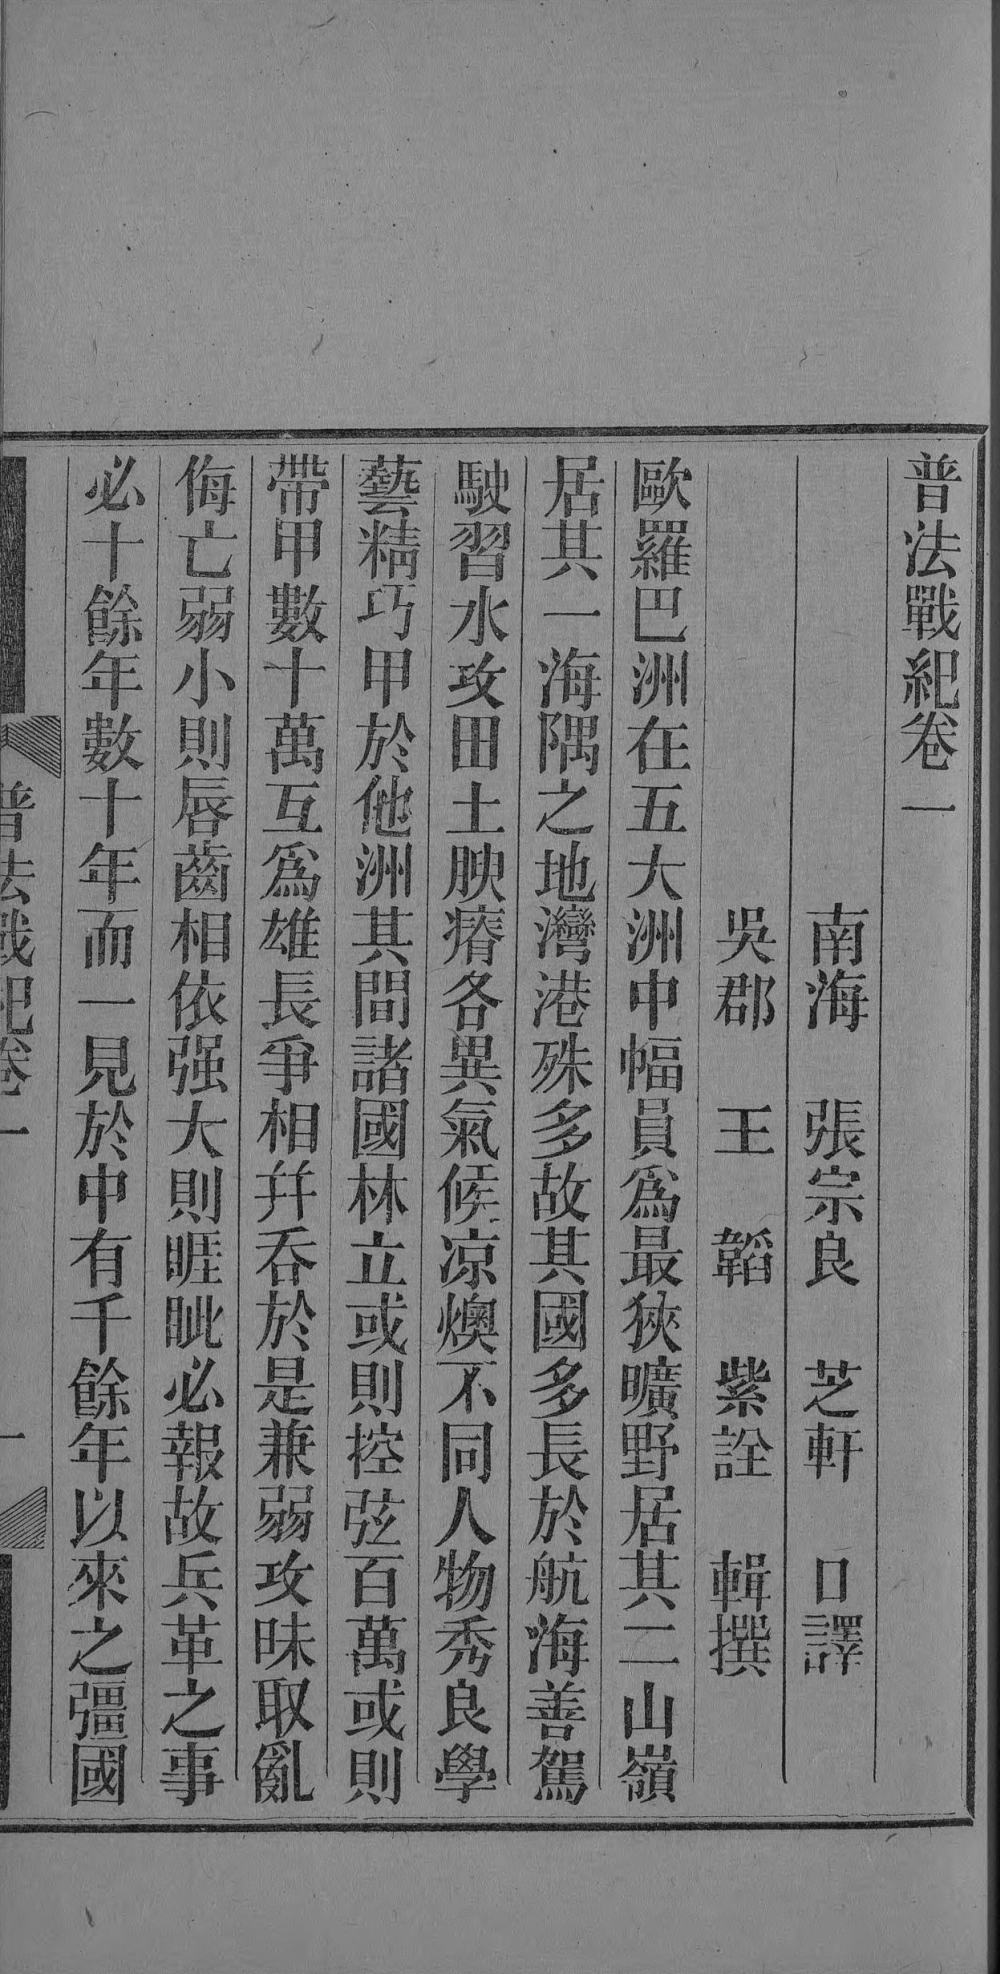 普法戰紀卷一
南海 張宗良 芝軒 口譯
吳郡 王 韜 紫詮 輯撰
歐羅巴洲在五大洲中幅員爲最狹曠野居其二山嶺
居其一海隅之地灣港殊多故其國多長於航海善駕
駛習水攻田土腴瘠各異氣候凉燠不同人物秀良學
藝精巧甲於他洲其間諸國林立或則控弦百萬或則
帶甲數十萬互爲雄長爭相幷吞於是兼弱攻昧取亂
侮亡弱小則唇齒相依强大則睚眦必報故兵革之事
必十餘年數十年而一見於中有千餘年以來之彊國
普法戰紀卷一
一